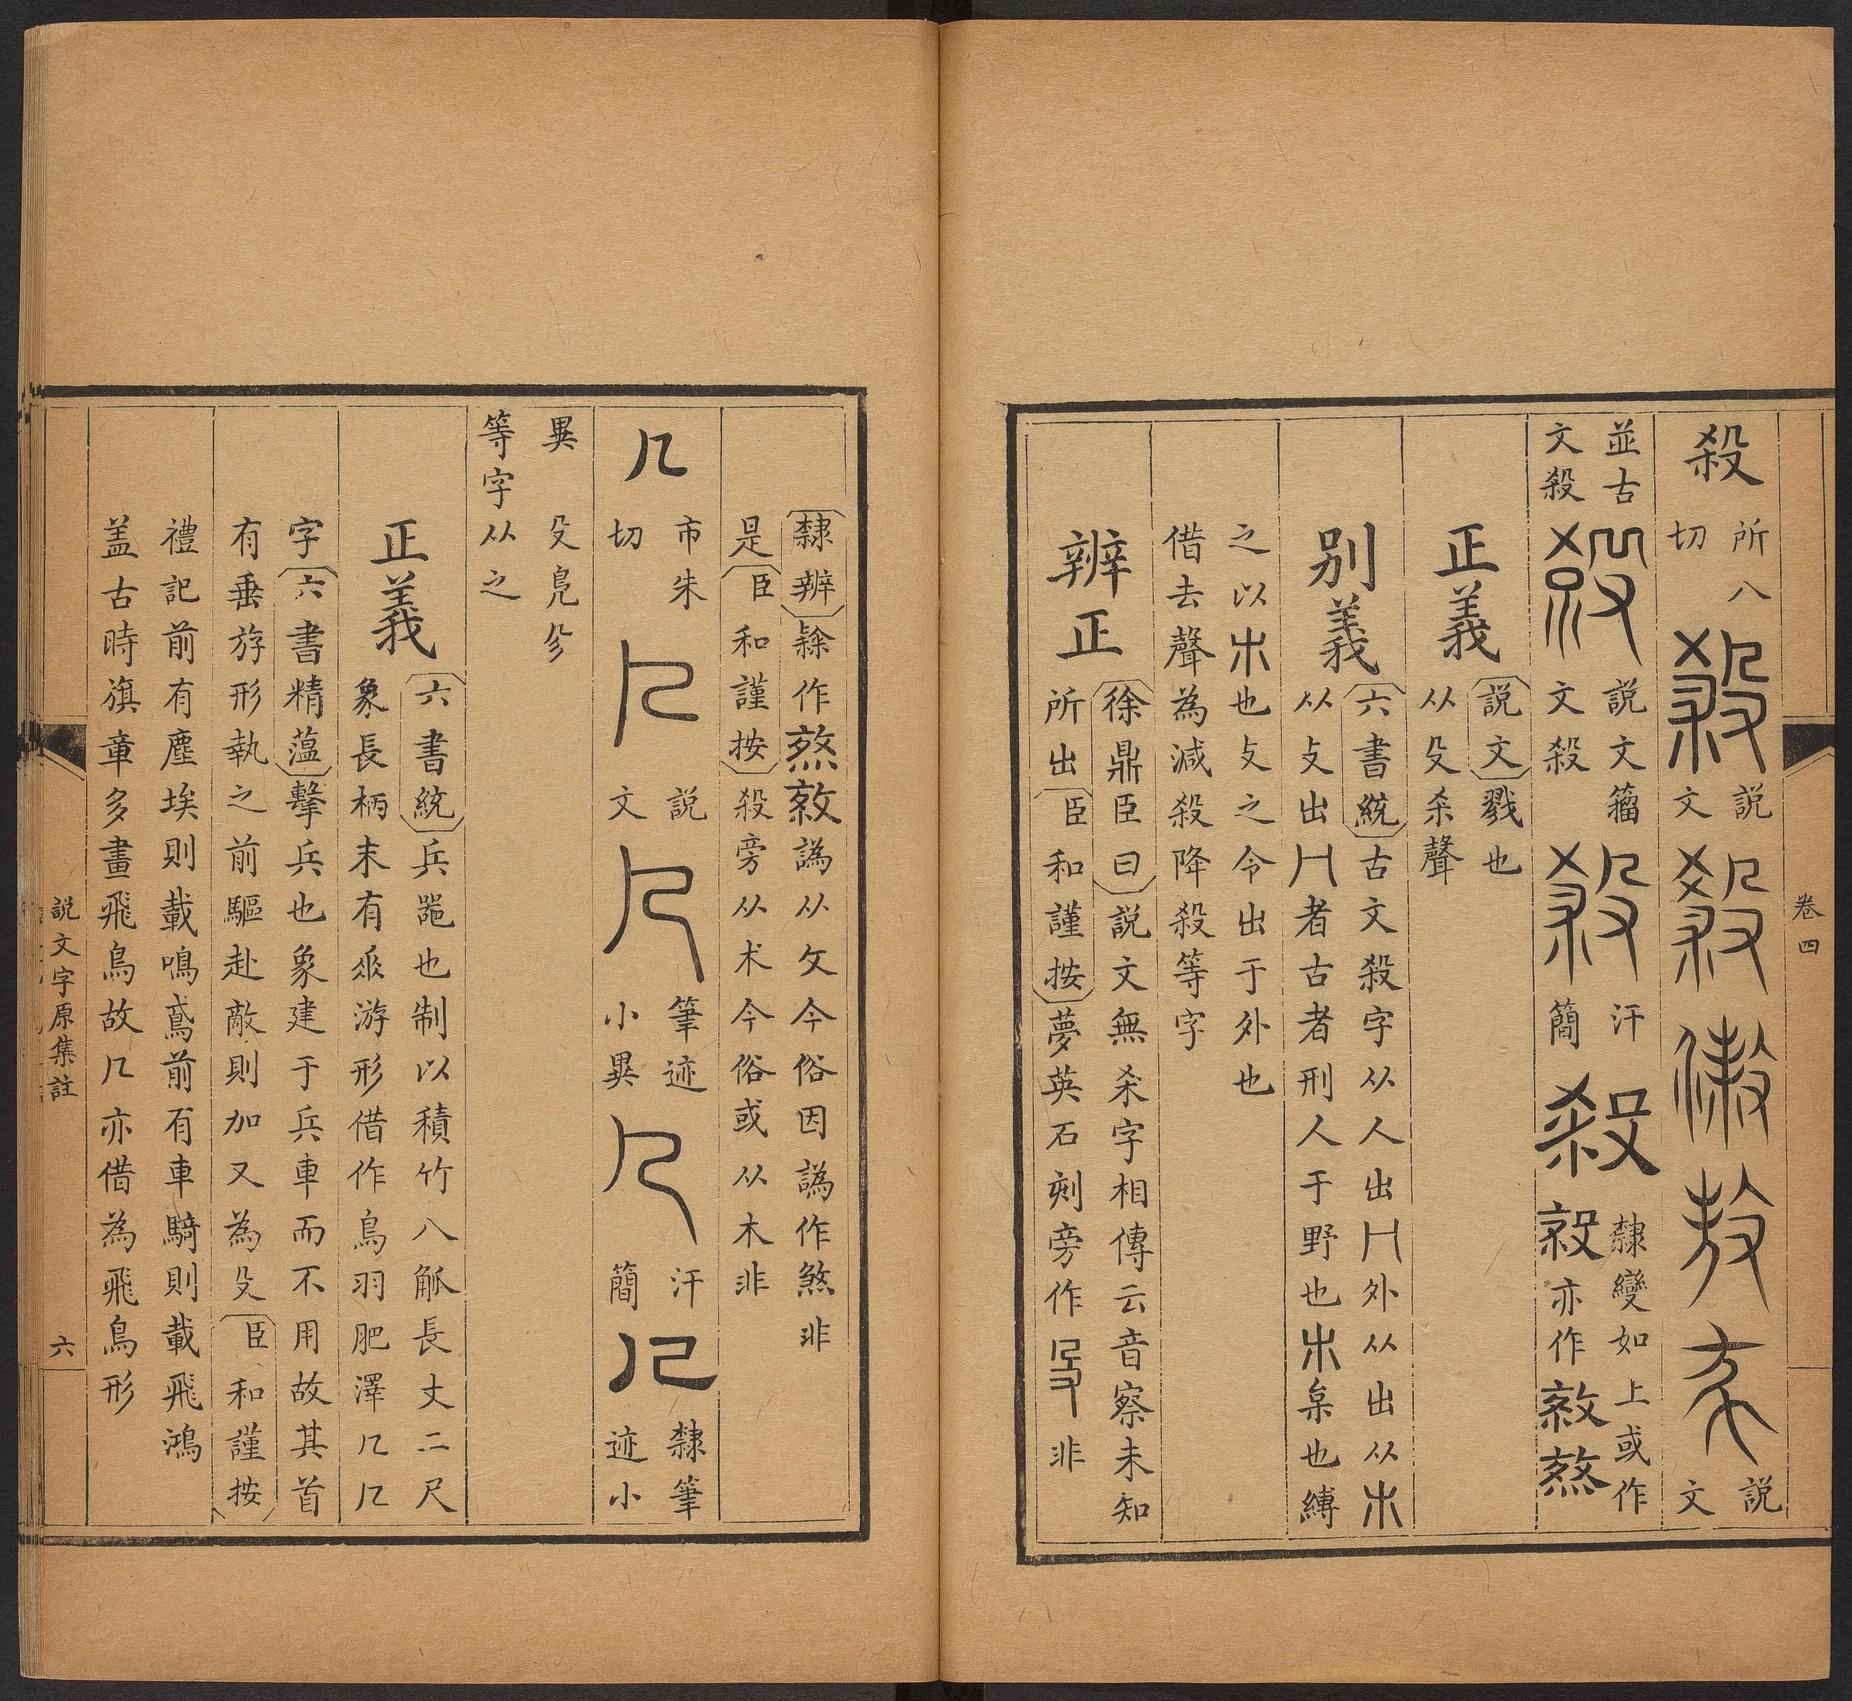 卷四
殺
所八
切
説
文
説
文
並古
文殺
説文籀
文殺
汗
簡
隸變如上或作
亦作
正義
説文戮也
从殳杀聲
别義
六書統古文殺字从人出冂外从出从朩
从攴出冂者古者刑人于野也朩枲也縛
之以朩也攴之令出于外也
借去聲為減殺降殺等字
辨正
徐鼎臣曰説文無杀字相傳云音察未知
所出臣和謹按夢英石刻旁作 非
隸辨 作煞 譌从攵今俗因譌作煞非
是臣和謹按殺旁从朮今俗或从木非
几
市朱
切
説
文
筆迹
小異
汗
簡
隸筆
迹小
異
殳鳧㐱
等字从之
正義
六書統兵器也制以積竹八觚長丈二尺
象長柄末有垂游形借作鳥羽肥澤几几
字六書精薀擊兵也象建于兵車而不用故其首
有垂斿形執之前驅赴敵則加又為殳臣和謹按
禮記前有塵埃則載鳴鳶前有車騎則載飛鴻
盖古時旗章多畫飛鳥故几亦借為飛鳥形
説文字原集註
六